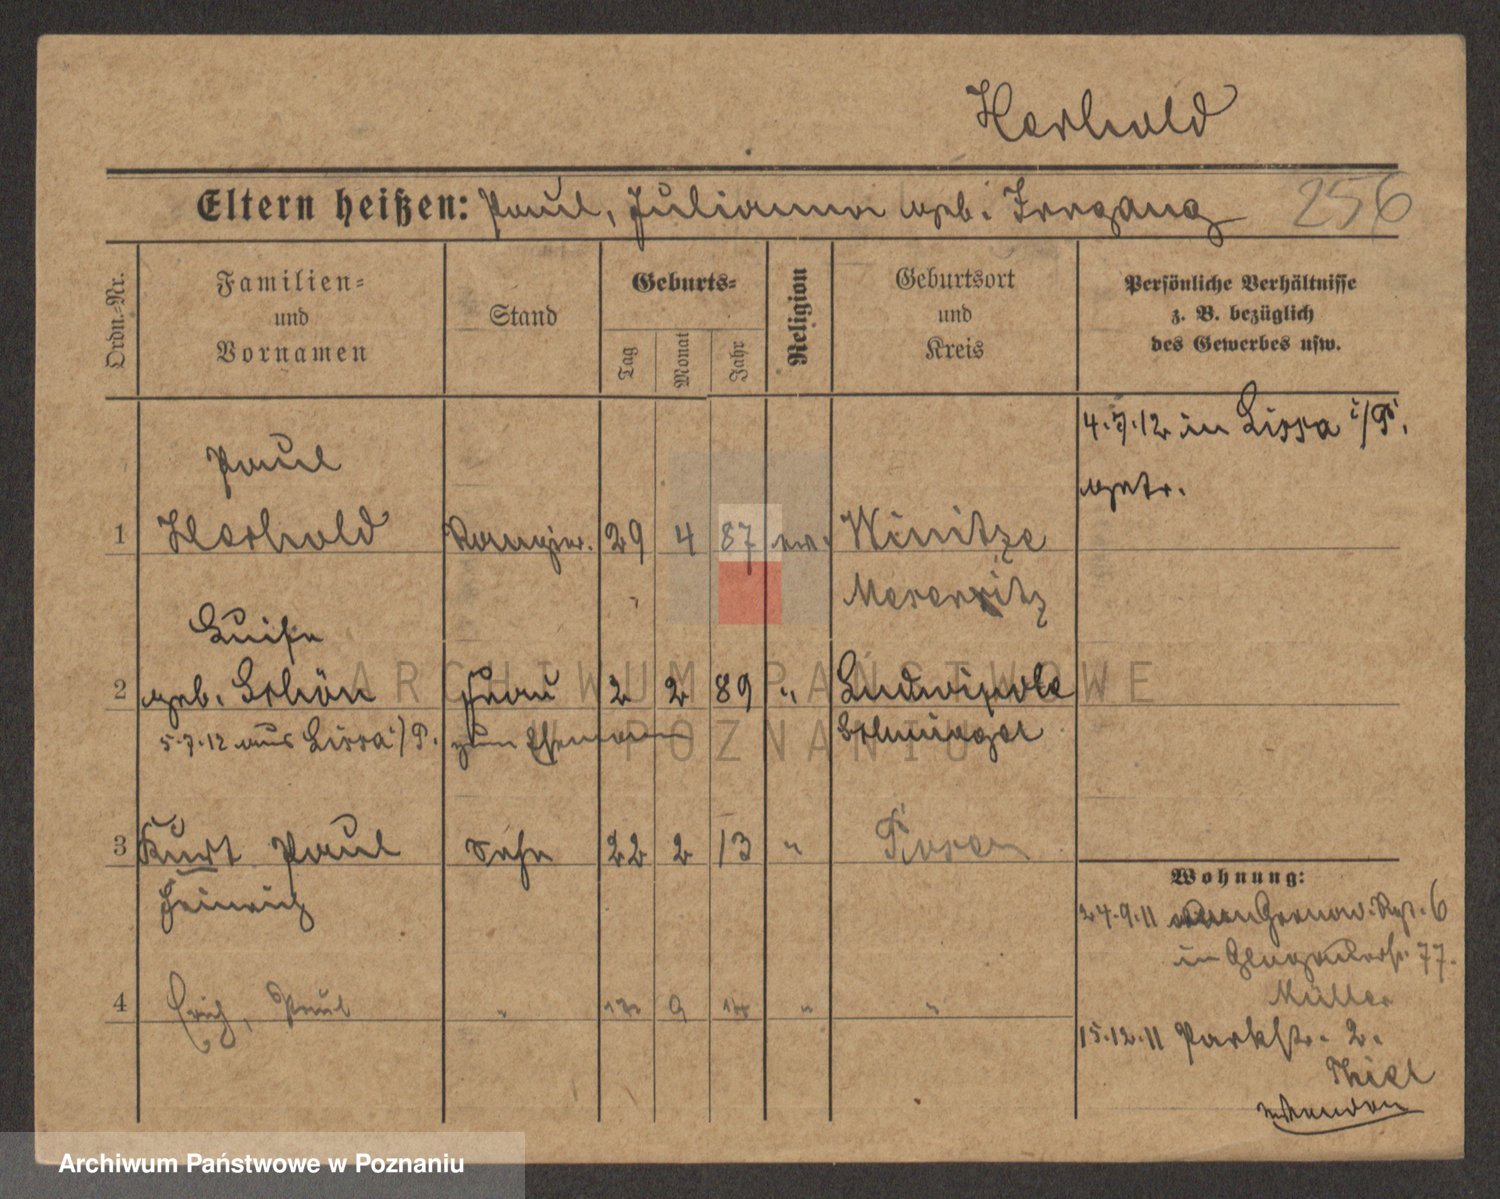 Herhold
Eltern heißen: Paul, Julianna geb. Irrgang 256
Ordn.-Nr.
Familien-
und
Vornamen
Stand
Geburts-
Tag
Monat
Jahr
Religion
Geburtsort
und
Kreis
Persönliche Verhältnisse
z. B. bezüglich
des Gewerbes usw.
4.7.12 in Lissa i/P.
getr.
Paul
1 Herhold Rangier. 29 4 87 ev. Winitze
Meseritz
Luise
2 geb. Schön Frau 2 2 89 " Ludwigsole
5.7.12 aus Lissa i/P. zum Ehemann Schmiegel
3 Kurt Paul Sohn 22 2 13 " Posen
Heinrich
4 Erich, Paul " 9 14 " "
Wohnung:
24.9.11 Grenad. Rgt. 6
in Glogauerstr. 77.
Müller
15.12.11 Parkstr. 2.
Thiel
ARCHIWUM PAŃSTWOWE
W POZNANIU
Archiwum Państwowe w Poznaniu